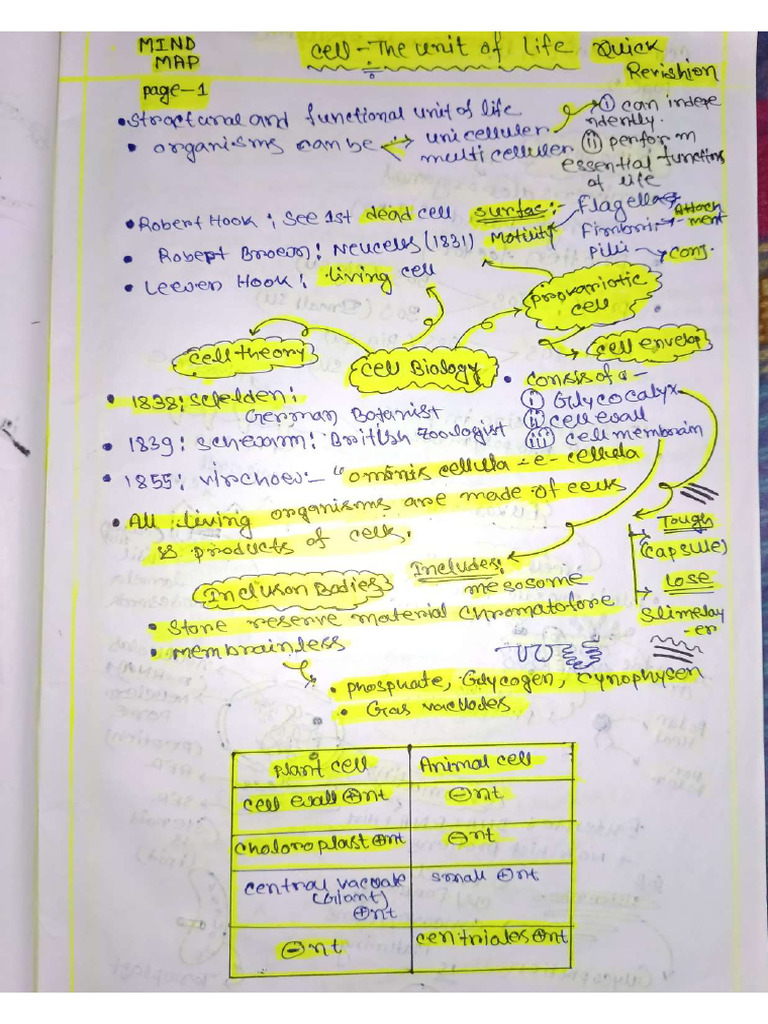 MIND MAP
cell - The unit of life Quick Revishion
page-1
• structural and functional unit of life
• organisms can be → unicelluler
multicelluler
(i) can indepe
ndently.
(ii) perform
essential functions
of life
• Robert Hook : See 1st dead cell
• Robert Broean : Neucelus (1831)
• Leeven Hook : living cell
surfac:- Flagella
Motility
Fimbri - Attach
ment
Pilii → conj.
Prokariotic
cell
cell theory
cell Biology
cell envelop
• 1838 : Schelden :
German Botanist
• 1839 : scheann : British Zoologist
• 1855 : virchoew :- "ominis cellula - e - cellula
• All living organisms are made of cells
& products of cells.
• consis of a -
(i) Glycocalyx
(ii) cell wall
(iii) cell membrain
Tough
(capsule)
Lose
Slimelay
-er
Includes:
mesosome
chromatofore
Inclusion Badies
• Store reserve material
• membrainless
• phosphate, Glycogen, Cynophysen
• Gas vacuodes
plant cell | Animal cell
cell wall ⊕nt | ⊖nt
choloroplast ⊕nt | ⊖nt
central vacuole (Giant) ⊕nt | small ⊕nt
⊖nt | centrioles ⊕nt